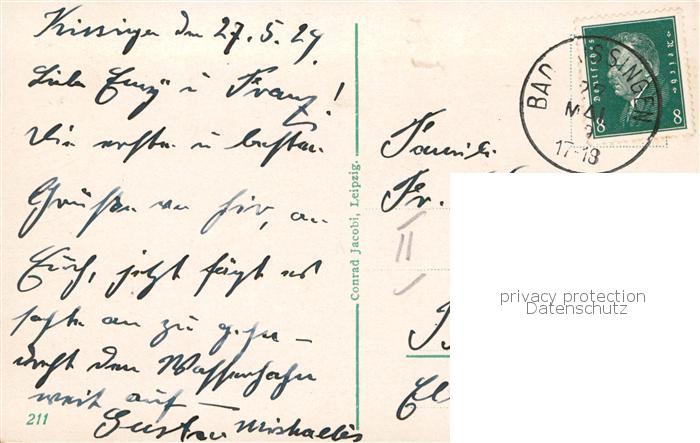 Kissingen den 27.5.29.
Liebe u Franz!
Die ersten u besten
Grüße von hier, an
Euch, jetzt fängt es
an zu gehn —
dreht den Wasserhahn
weit auf —
Gustav Michaelis
211
Conrad Jacobi, Leipzig.
BAD KISSINGEN
MAI
17-18
Deutsches Reich
8 8
Famili
Fr.
II
privacy protection
Datenschutz